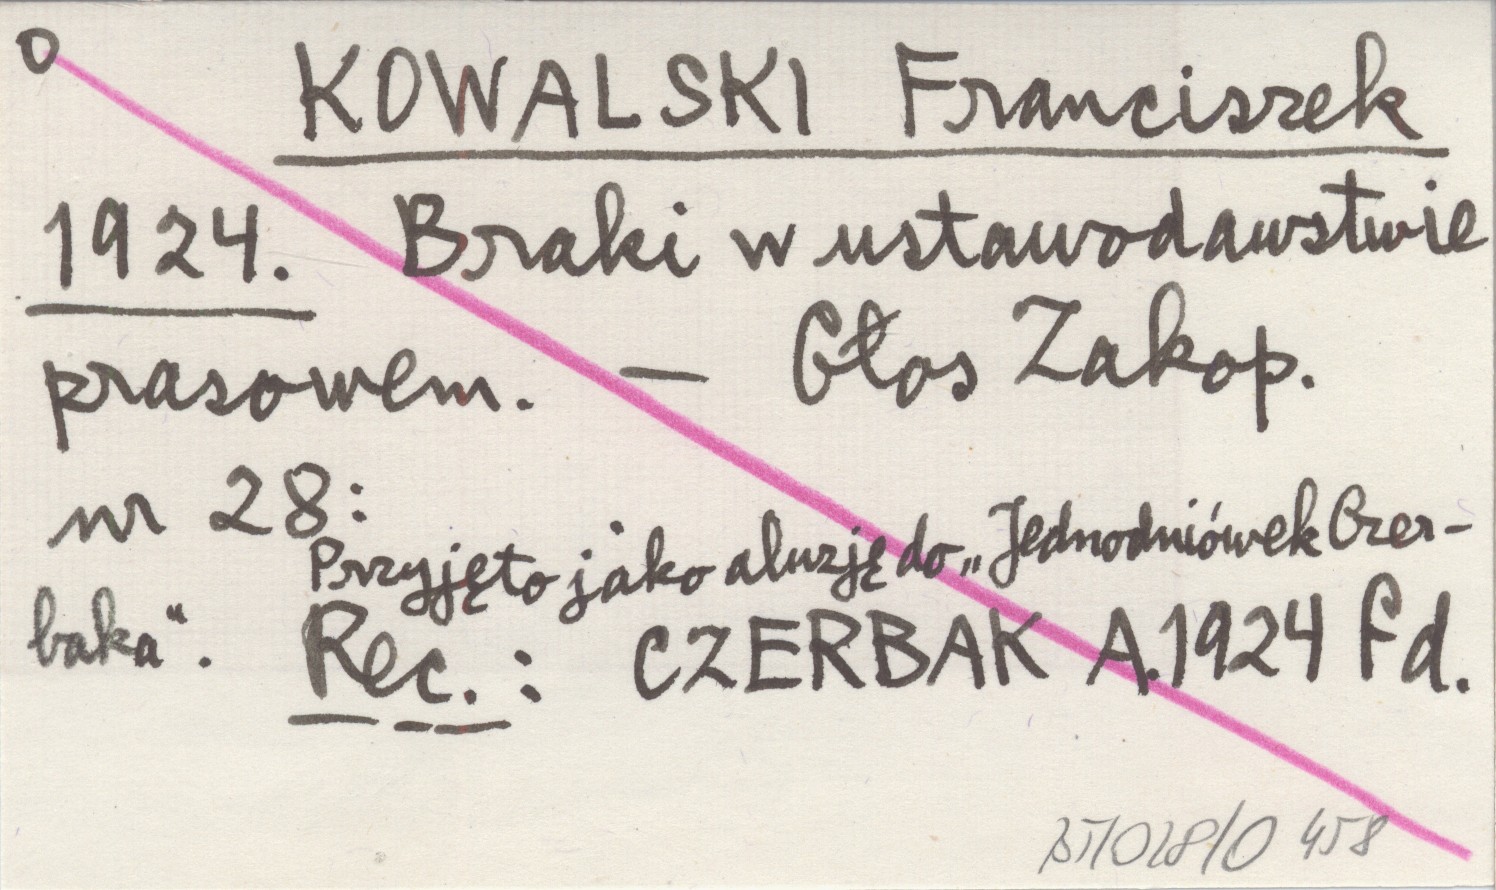 O KOWALSKI Franciszek
1924. Braki w ustawodawstwie
prasowem. — Głos Zakop.
nr 28:
Przyjęto jako aluzję do „Jednodniówek Czer-
baka". Rec.: CZERBAK A. 1924 Fd.
/O 458